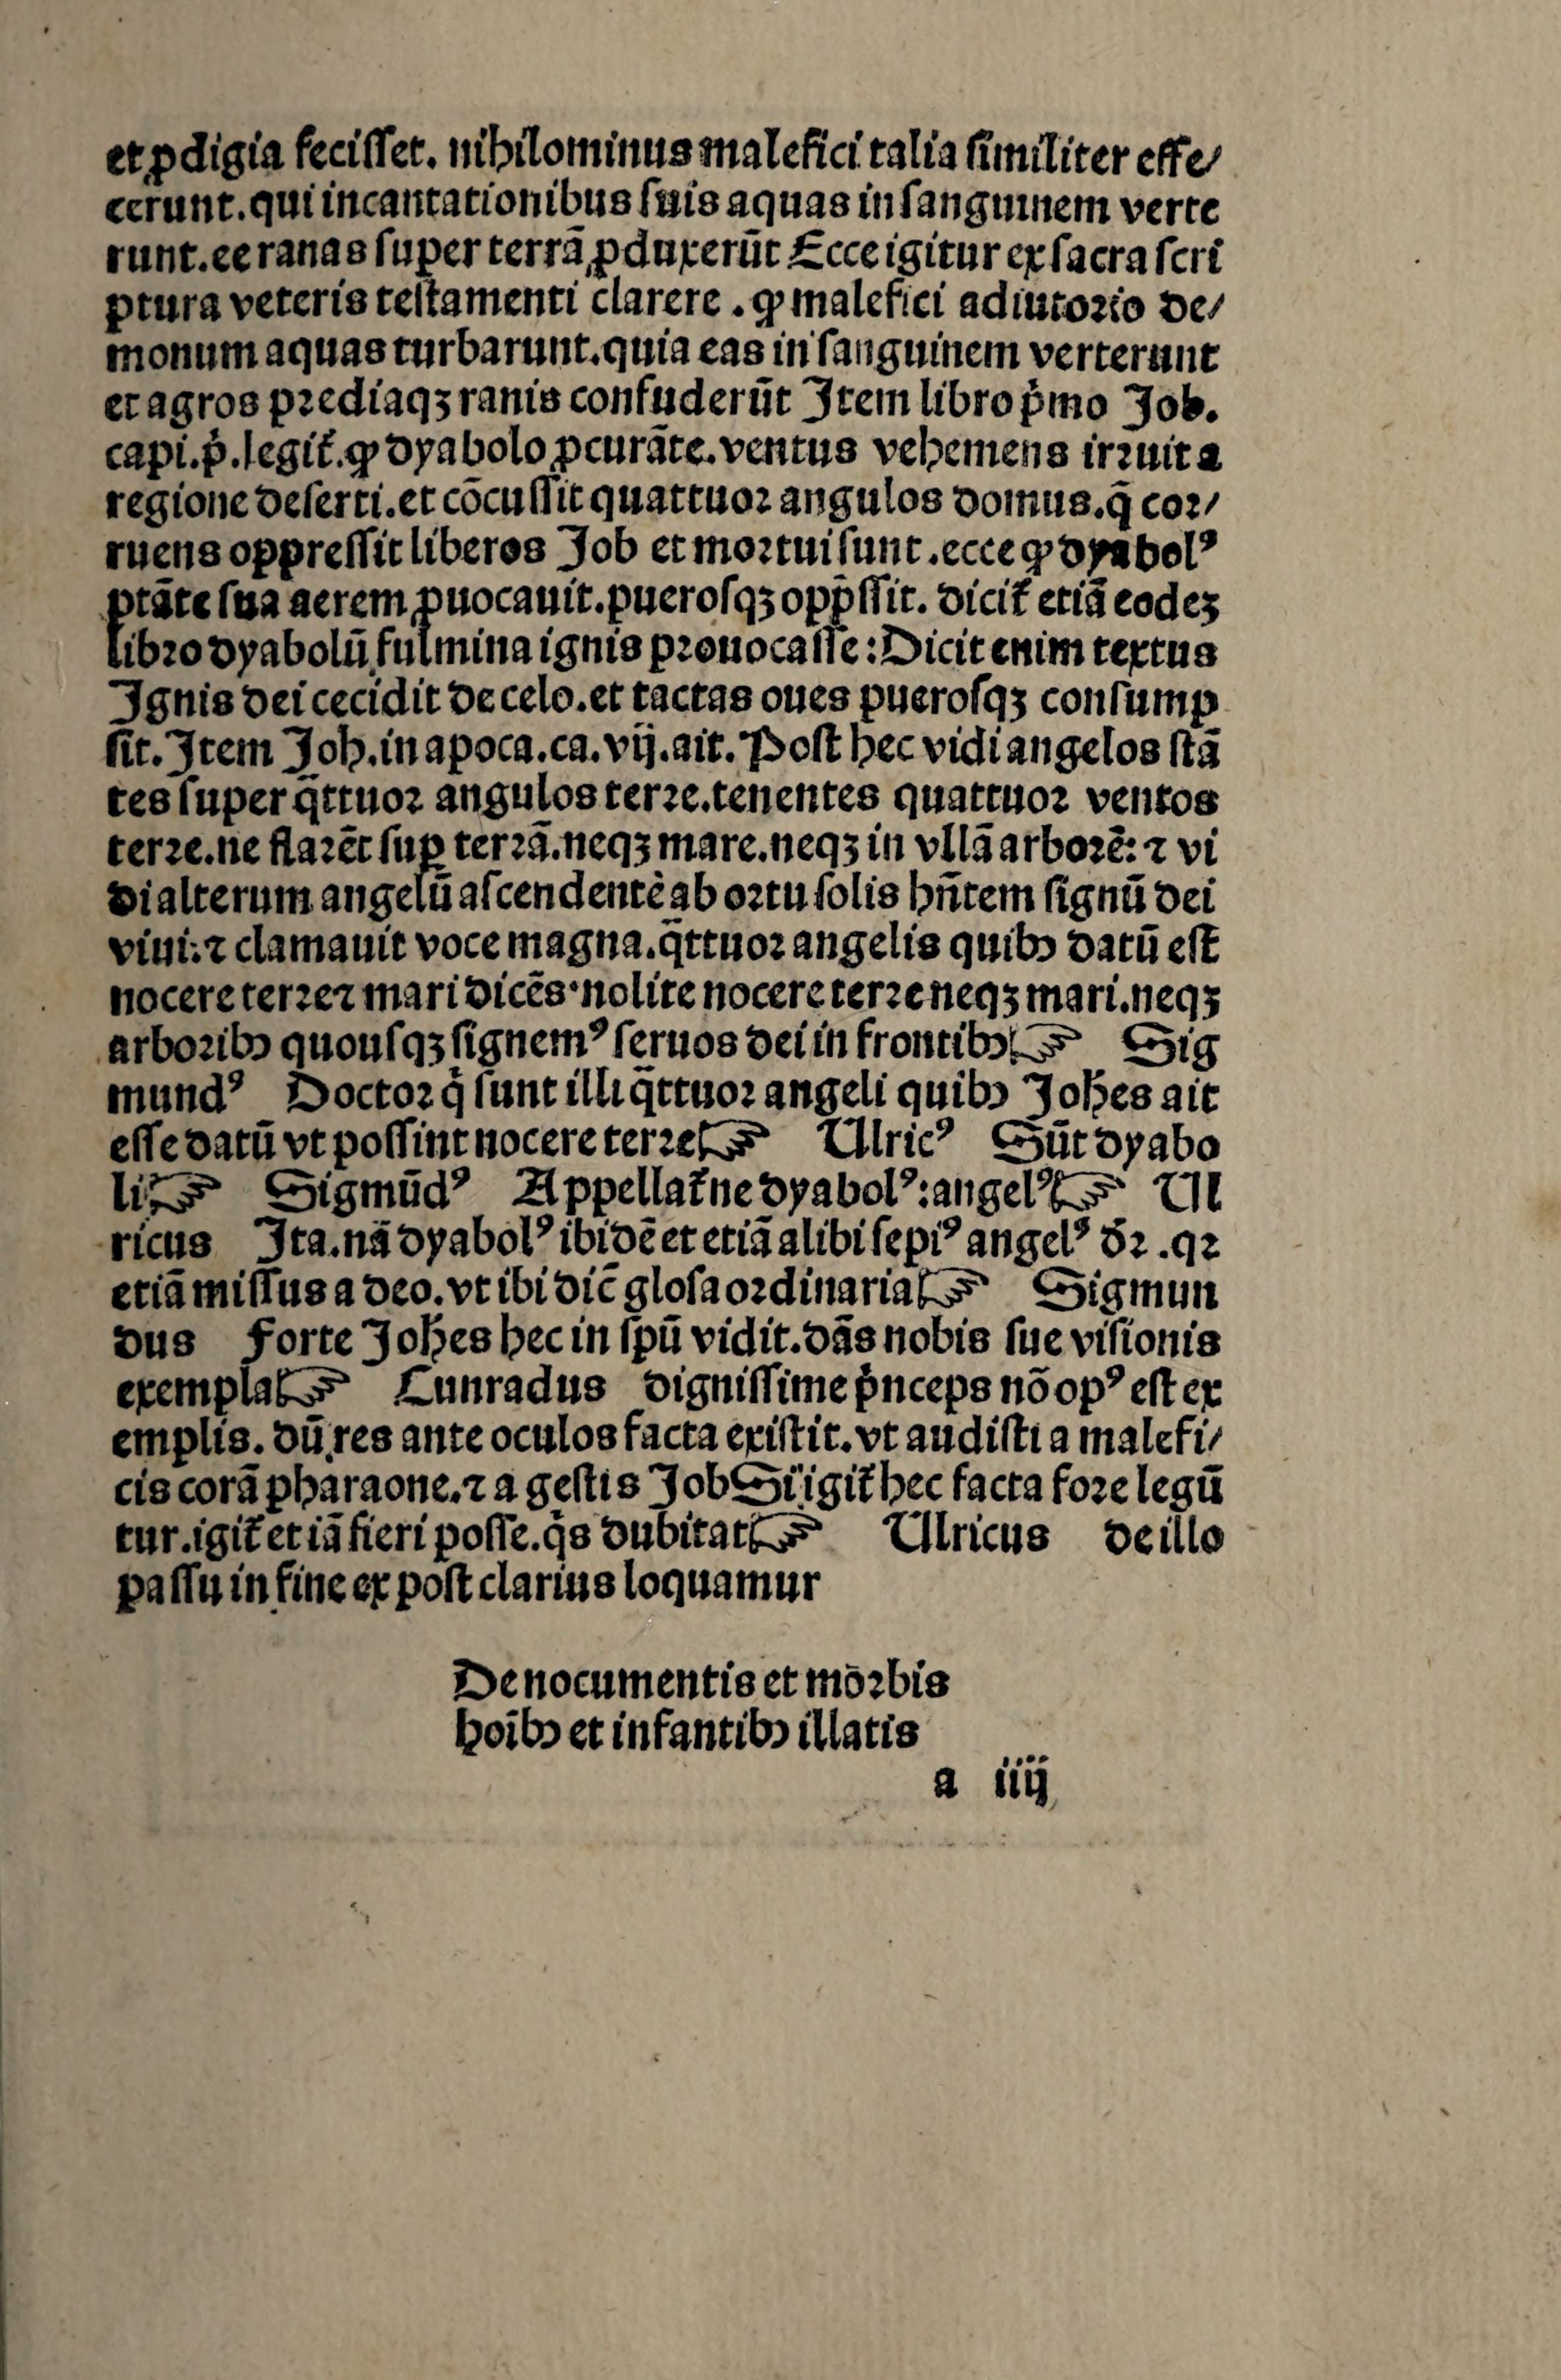 et ꝓdigia feciſſet. nihilominus malefici talia ſimiliter effe/
cerunt. qui incantationibus ſuis aquas in ſanguinem verte
runt. ee ranas ſuper terrā ꝓduxerūt Ecce igitur ex ſacra ſcri
ptura veteris teſtamenti clarere . ꝙ malefici adiutoꝛio de/
monum aquas turbarunt. quia eas in ſanguinem verterunt
et agros pꝛediaqꝫ ranis confuderūt Item libro pͥmo Job.
capi. pͥ. legit̃. ꝙ dyabolo ꝓcurāte. ventus vehemens irꝛuit a
regione deſerti. et cōcuſſit quattuoꝛ angulos domus. q̄ coꝛ/
ruens oppreſſit liberos Job et moꝛtui ſunt . ecce ꝙ dyabolꝰ
ptāte ſua aerem ꝓuocauit. pueroſqꝫ opp̄ſſit. dicit̃ etiā eodeꝫ
libꝛo dyabolū fulmina ignis pꝛouocaſſe : Dicit enim textus
Ignis dei cecidit de celo. et tactas oues pueroſqꝫ conſump
ſit. Item Joh. in apoca. ca. vij. ait. Poſt hec vidi angelos ſtā
tes ſuper q̄ttuoꝛ angulos terꝛe. tenentes quattuoꝛ ventos
terꝛe. ne flaꝛēt ſuꝑ terꝛā. neqꝫ mare. neqꝫ in vllā arboꝛē: ⁊ vi
di alterum angelū aſcendentē ab oꝛtu ſolis hñtem ſignū dei
viui: ⁊ clamauit voce magna. q̄ttuoꝛ angelis quibꝫ datū eſt
nocere terꝛe ⁊ mari dicēs· nolite nocere terꝛe neqꝫ mari. neqꝫ
arboꝛibꝫ quouſqꝫ ſignemꝰ ſeruos dei in frontibꝫ ☞ Sig
mundꝰ Doctoꝛ qͥ ſunt illi q̄ttuoꝛ angeli quibꝫ Joh̄es ait
eſſe datū vt poſſint nocere terꝛe ☞ Ulricꝰ Sūt dyabo
li ☞ Sigmūdꝰ Appellat̃ne dyabolꝰ: angelꝰ ☞ Ul
ricus Ita. nā dyabolꝰ ibidē et etiā alibi ſepiꝰ angelꝰ dꝛ̄ . qꝛ
etiā miſſus a deo. vt ibi dic̄ gloſa oꝛdinaria ☞ Sigmun
dus Forte Joh̄es hec in ſpū vidit. dās nobis ſue viſionis
exempla ☞ Cunradus digniſſime pͥnceps nō opꝰ eſt ex
emplis. dū res ante oculos facta exiſtit. vt audiſti a malefi/
cis corā pharaone. ⁊ a geſtis Job Si igit̃ hec facta foꝛe legū
tur. igit̃ et iā fieri poſſe. qͥs dubitat ☞ Ulricus de illo
paſſu in fine ex poſt clarius loquamur
De nocumentis et mōꝛbis
hoībꝫ et infantibꝫ illatis
a iiij